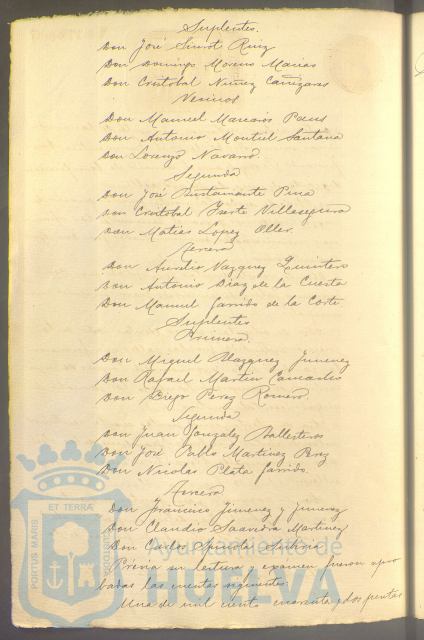 Suplentes.
Don José Ruiz
Don Domingo Moreno Macias
Don Cristobal Nuñez Cañizares
Vecinos
Don Manuel Mascarós Pons
Don Antonio Montiel Santana
Don Lorenzo Navarro.
Segunda
Don José Bustamante Pina
Don Cristobal Yserte Villaseguera
Don Matias Lopez Oller.
Tercera
Don Aurelio Vazquez Quintero
Don Antonio Diaz de la Cuesta
Don Manuel Garrido de la Corte
Suplentes
Primera.
Don Miguel Vlazquez Jimenez
Don Rafael Martin Camacho
Don Diego Perez Romero
Segunda
Don Juan Gonzalez Ballesteros
Don José Pablo Martinez Perez
Don Nicolas Plata Garrido.
Tercera
Don Francisco Jimenez y Jimenez
Don Claudio Saavedra Martinez
Don Carlos Spinola
Previa su lectura y examen fueron apro
badas las cuentas siguientes:
Una de mil ciento cuarenta y dos pesetas
ET TERRA
PORTUS MARIS
CUSTODIA
Ayuntamiento de
HUELVA